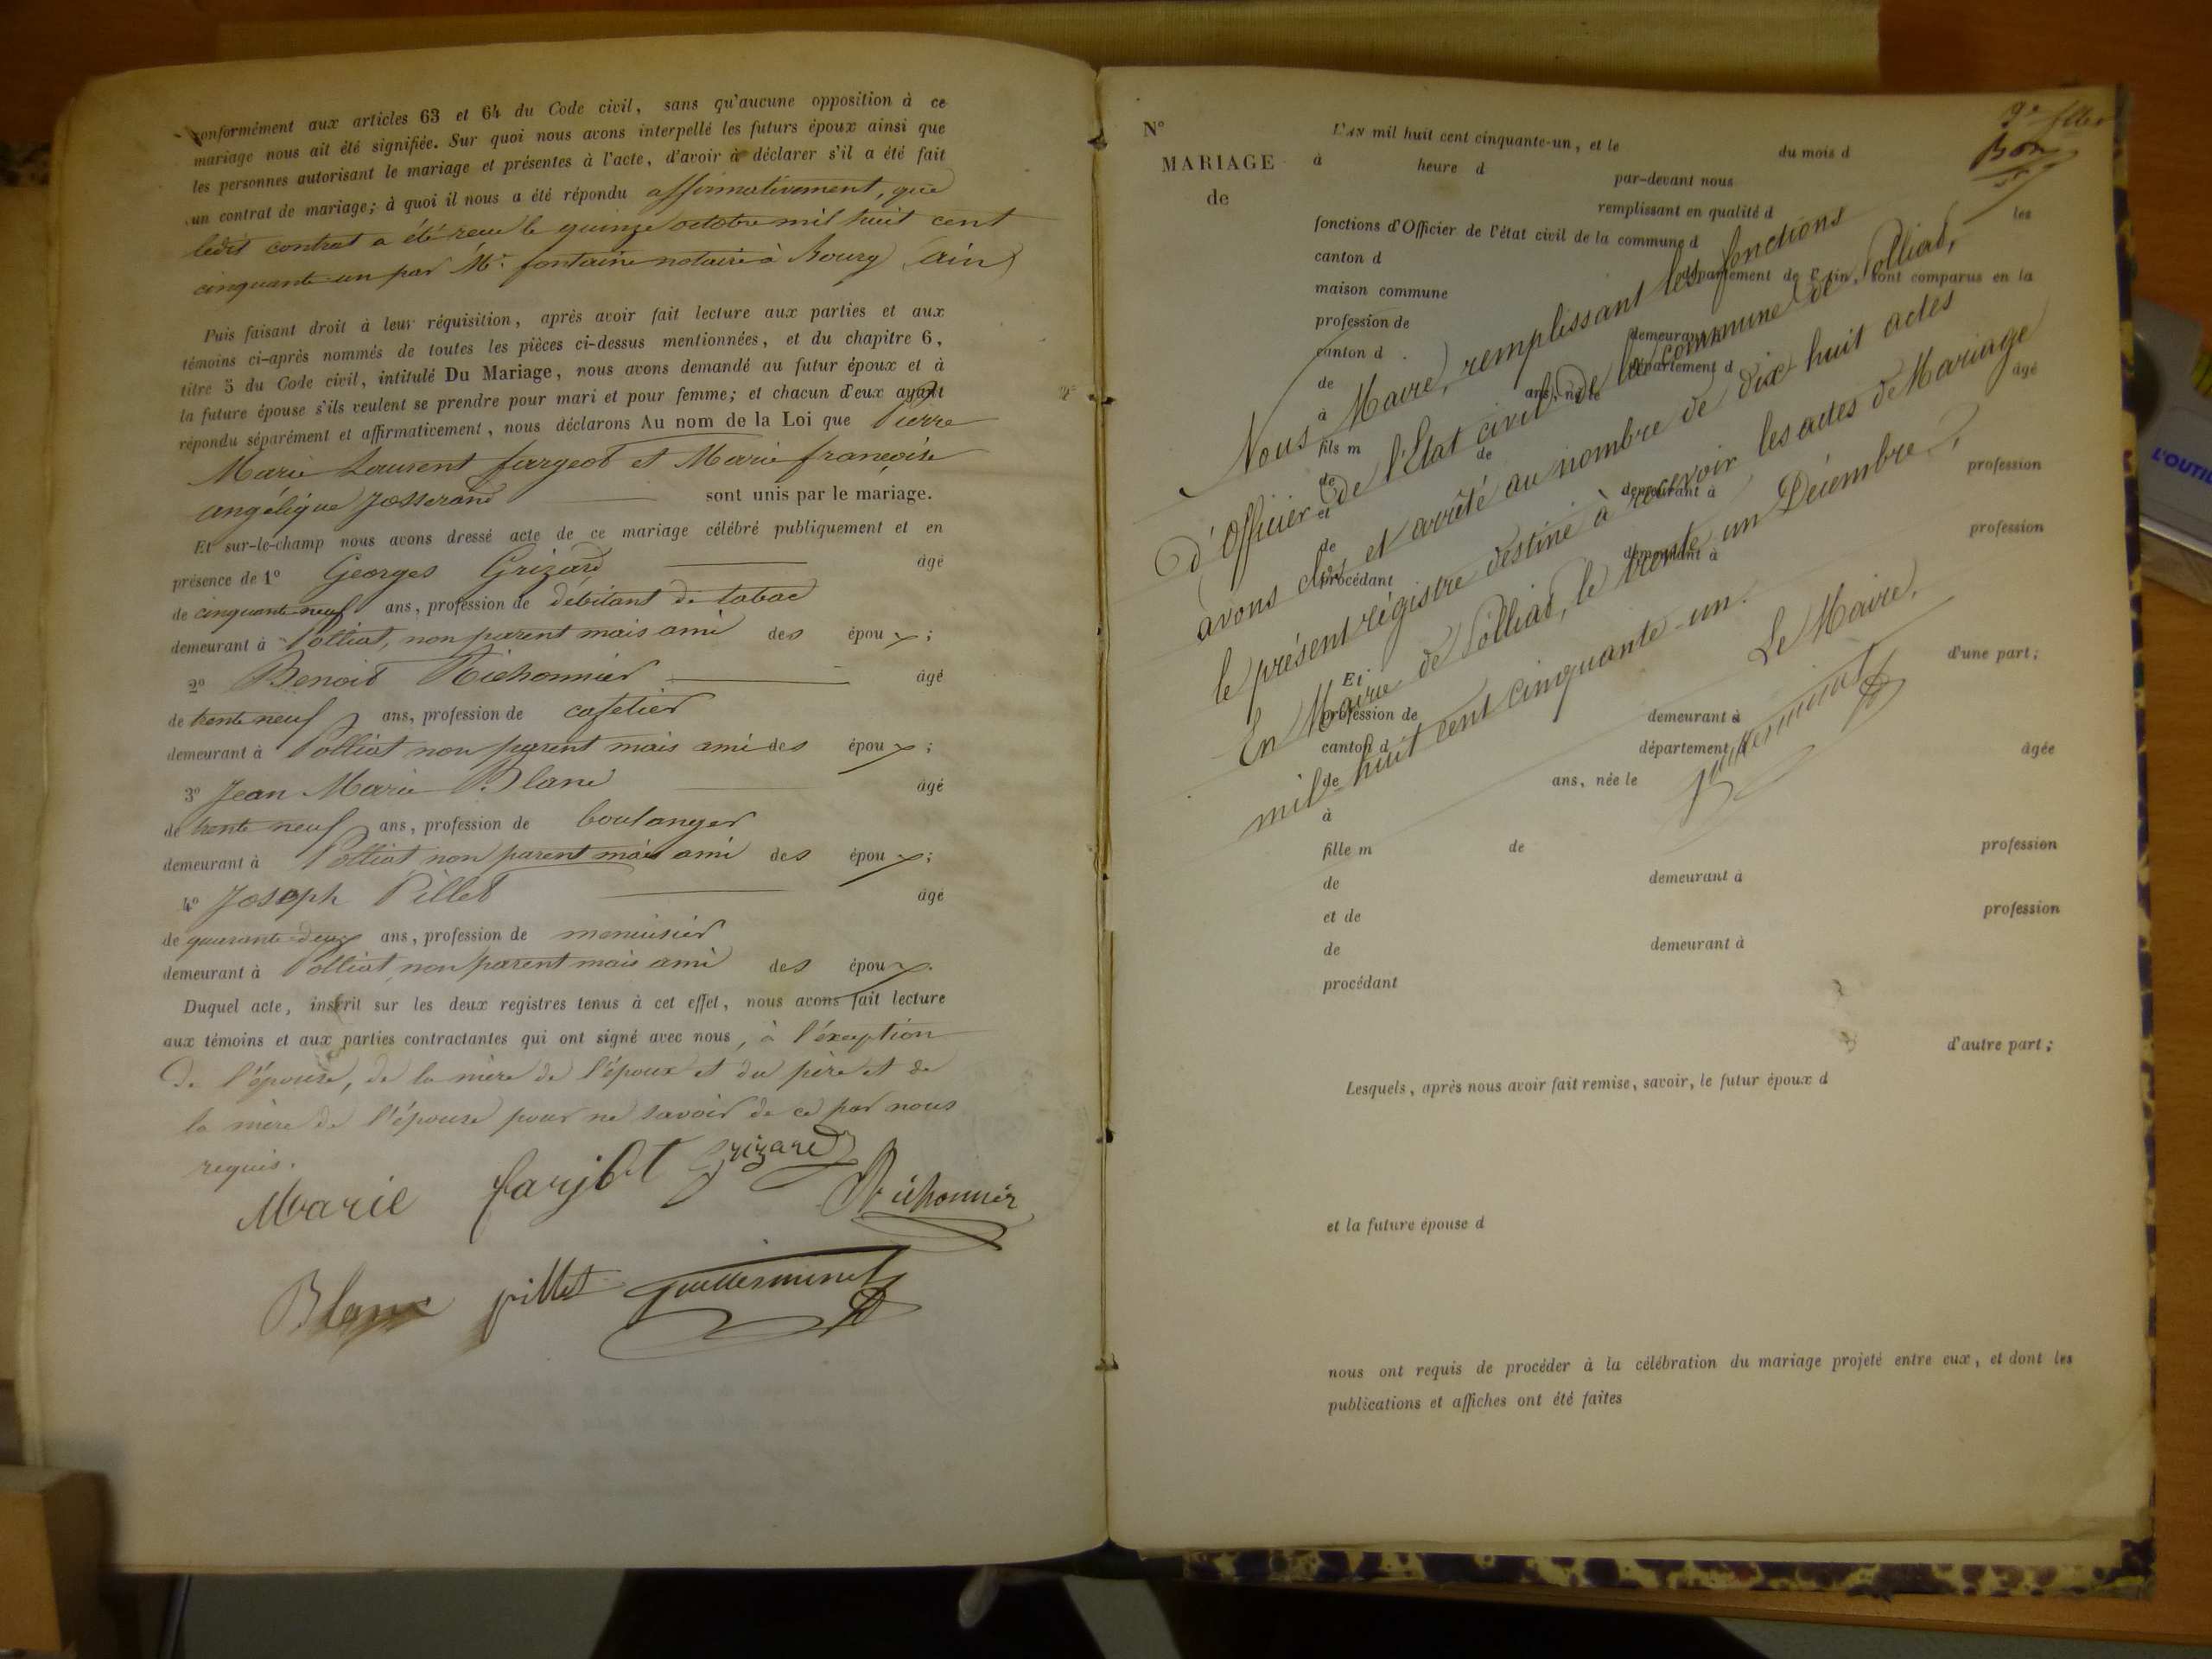 conformément aux articles 63 et 64 du Code civil, sans qu'aucune opposition à ce
mariage nous ait été signifiée. Sur quoi nous avons interpellé les futurs époux ainsi que
les personnes autorisant le mariage et présentes à l'acte, d'avoir à déclarer s'il a été fait
un contrat de mariage; à quoi il nous a été répondu affirmativement, que
ledit contrat a été reçu le quinze octobre mil huit cent
cinquante un par Me. fontaine notaire à Bourg (ain)
Puis faisant droit à leur réquisition, après avoir fait lecture aux parties et aux
témoins ci-après nommés de toutes les pièces ci-dessus mentionnées, et du chapitre 6,
titre 5 du Code civil, intitulé Du Mariage, nous avons demandé au futur époux et à
la future épouse s'ils veulent se prendre pour mari et pour femme; et chacun d'eux ayant
répondu séparément et affirmativement, nous déclarons Au nom de la Loi que Pierre
Marie Laurent fargeot et Marie françoise
angélique Josserand sont unis par le mariage.
Et sur-le-champ nous avons dressé acte de ce mariage célébré publiquement et en
présence de 1o Georges Grizard âgé
de cinquante neuf ans, profession de débitant de tabac
demeurant à Polliat, non parent mais ami des époux;
2o Benoit Richonnier âgé
de trente neuf ans, profession de cafetier
demeurant à Polliat non parent mais ami des époux;
3o Jean Marie Blanc âgé
de trente neuf ans, profession de boulanger
demeurant à Polliat non parent mais ami des époux;
4o Joseph Pillet âgé
de quarante deux ans, profession de menuisier
demeurant à Polliat, non parent mais ami des époux.
Duquel acte, inscrit sur les deux registres tenus à cet effet, nous avons fait lecture
aux témoins et aux parties contractantes qui ont signé avec nous, à l'éxception
de l'épouse, de la mère de l'époux et du père et de
la mère de l'épouse pour ne savoir de ce par nous
requis.
Marie farjot Grizard
Richonnier
Blanc pillet Guillerminet
No
MARIAGE
de
L'AN mil huit cent cinquante-un, et le du mois d
à heure d par-devant nous
remplissant en qualité d les
fonctions d'Officier de l'état civil de la commune d
canton d département de l'Ain, sont comparus en la
maison commune
profession de demeurant
canton d département d
de ans, né le âgé
à
fils m de profession
de demeurant à
et profession
de demeurant à
procédant
d'une part;
Et
profession de demeurant à
canton d département d âgée
de ans, née le
à
fille m de profession
de demeurant à
et de profession
de demeurant à
procédant
d'autre part;
Lesquels, après nous avoir fait remise, savoir, le futur époux d
et la future épouse d
nous ont requis de procéder à la célébration du mariage projeté entre eux, et dont les
publications et affiches ont été faites
Nous Maire, remplissant les fonctions
d'Officier de l'Etat civil de la commune de Polliat,
avons clos et arrêté au nombre de dix huit actes
le présent régistre destiné à recevoir les actes de Mariage.
En Mairie de Polliat, le trente un Décembre
mil huit cent cinquante-un.
Le Maire,
Guillerminet
L'OUTIL